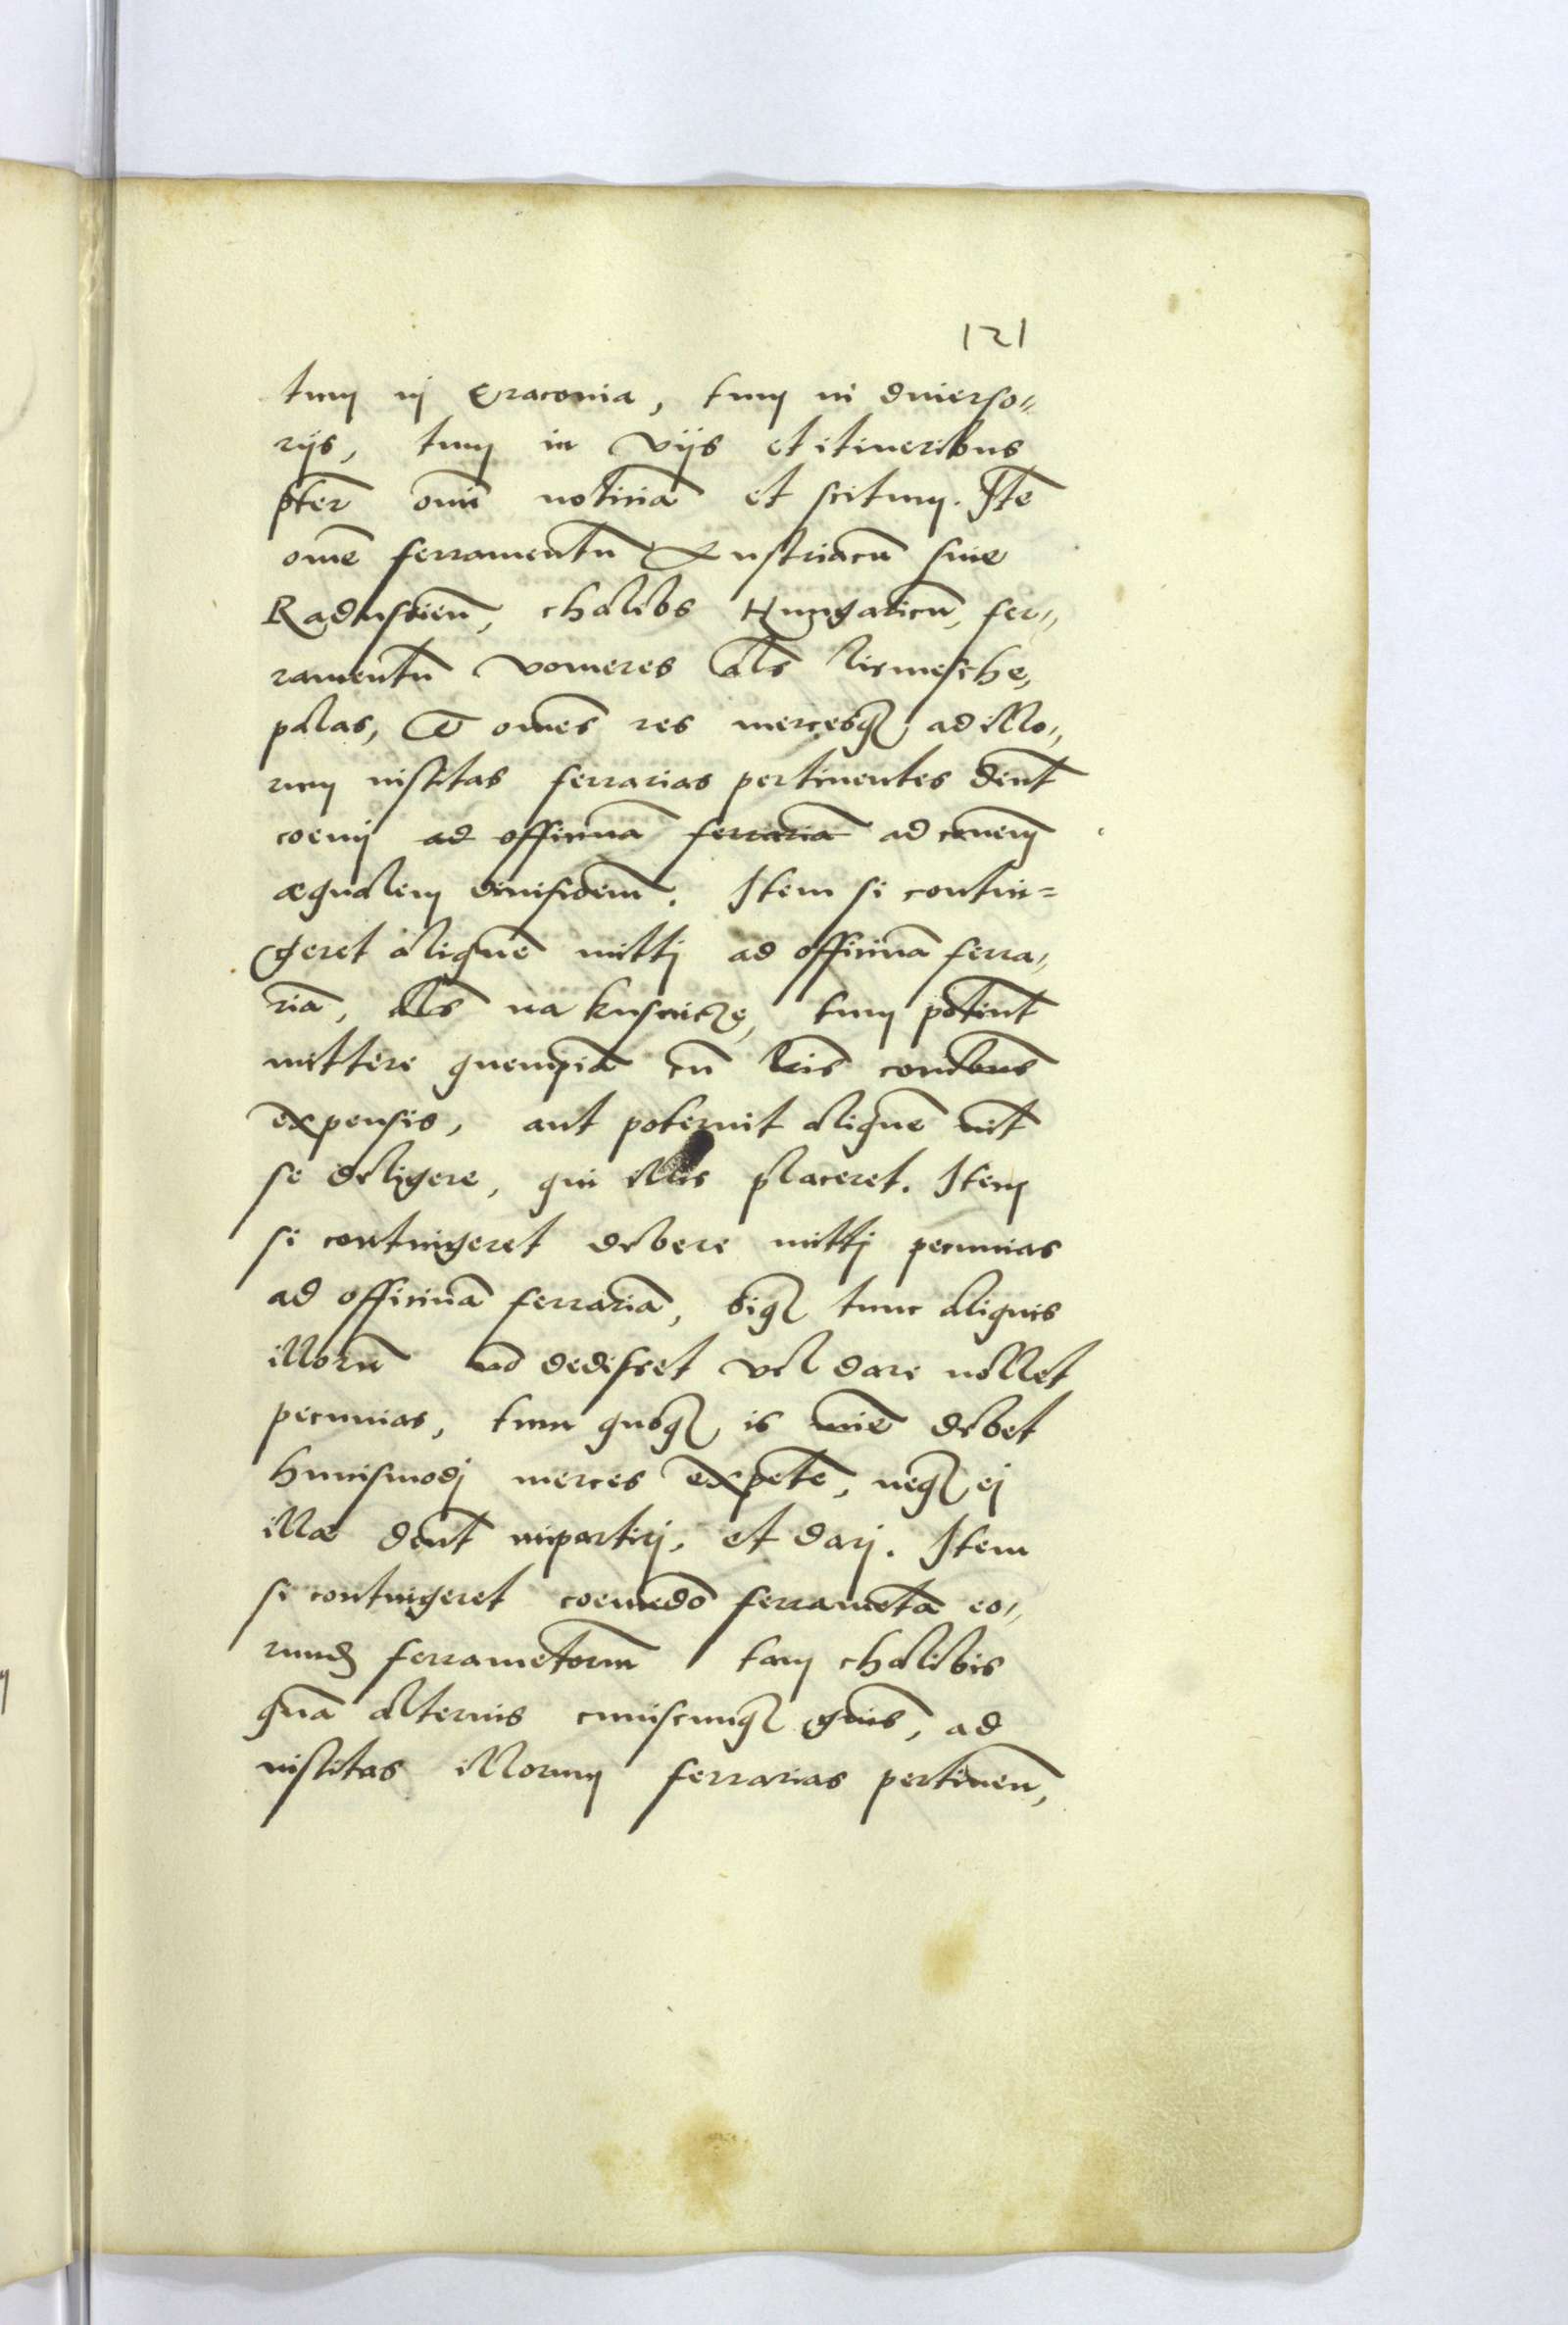 121
tum in Cracovia, tum in diverso„
rijs, tum in vijs et itineribus
pter omnē noticiā et scitum. Ite
ome ferramentū Austriacū sive
Raduskieñ, chalibs Hungaricū, fer„
ramentū vomeres als liemiesche,
palas, et omēs res mercesq ad illo„
rum institas ferrarias pertinentes deñt
coemi ad officinā ferrariā ad cōmem
æqualem divisiōem. Item si contin=
geret aliquē mitti ad officinā ferra„
riā, als na kusnicze, tum poteñt
mittere quempiā cū cōibus
expensis, aut poterint aliquē int
se deligere, qui illis placeret. Item
si contingeret debere mitti pecunias
ad officinā ferrariā, siq tunc aliquis
illorū nō dedisset vel dare nollet
pecunias, tum quoq is mīe debet
huiusmodi merces expetē, neq ei
illæ deñt impartiri, et dari. Item
si contingeret coemēdo ferramēta eo„
rund ferramētorum tam chalibis
quā alterius cuiuscunq gñis, ad
institas illorum ferrarias pertineñ,